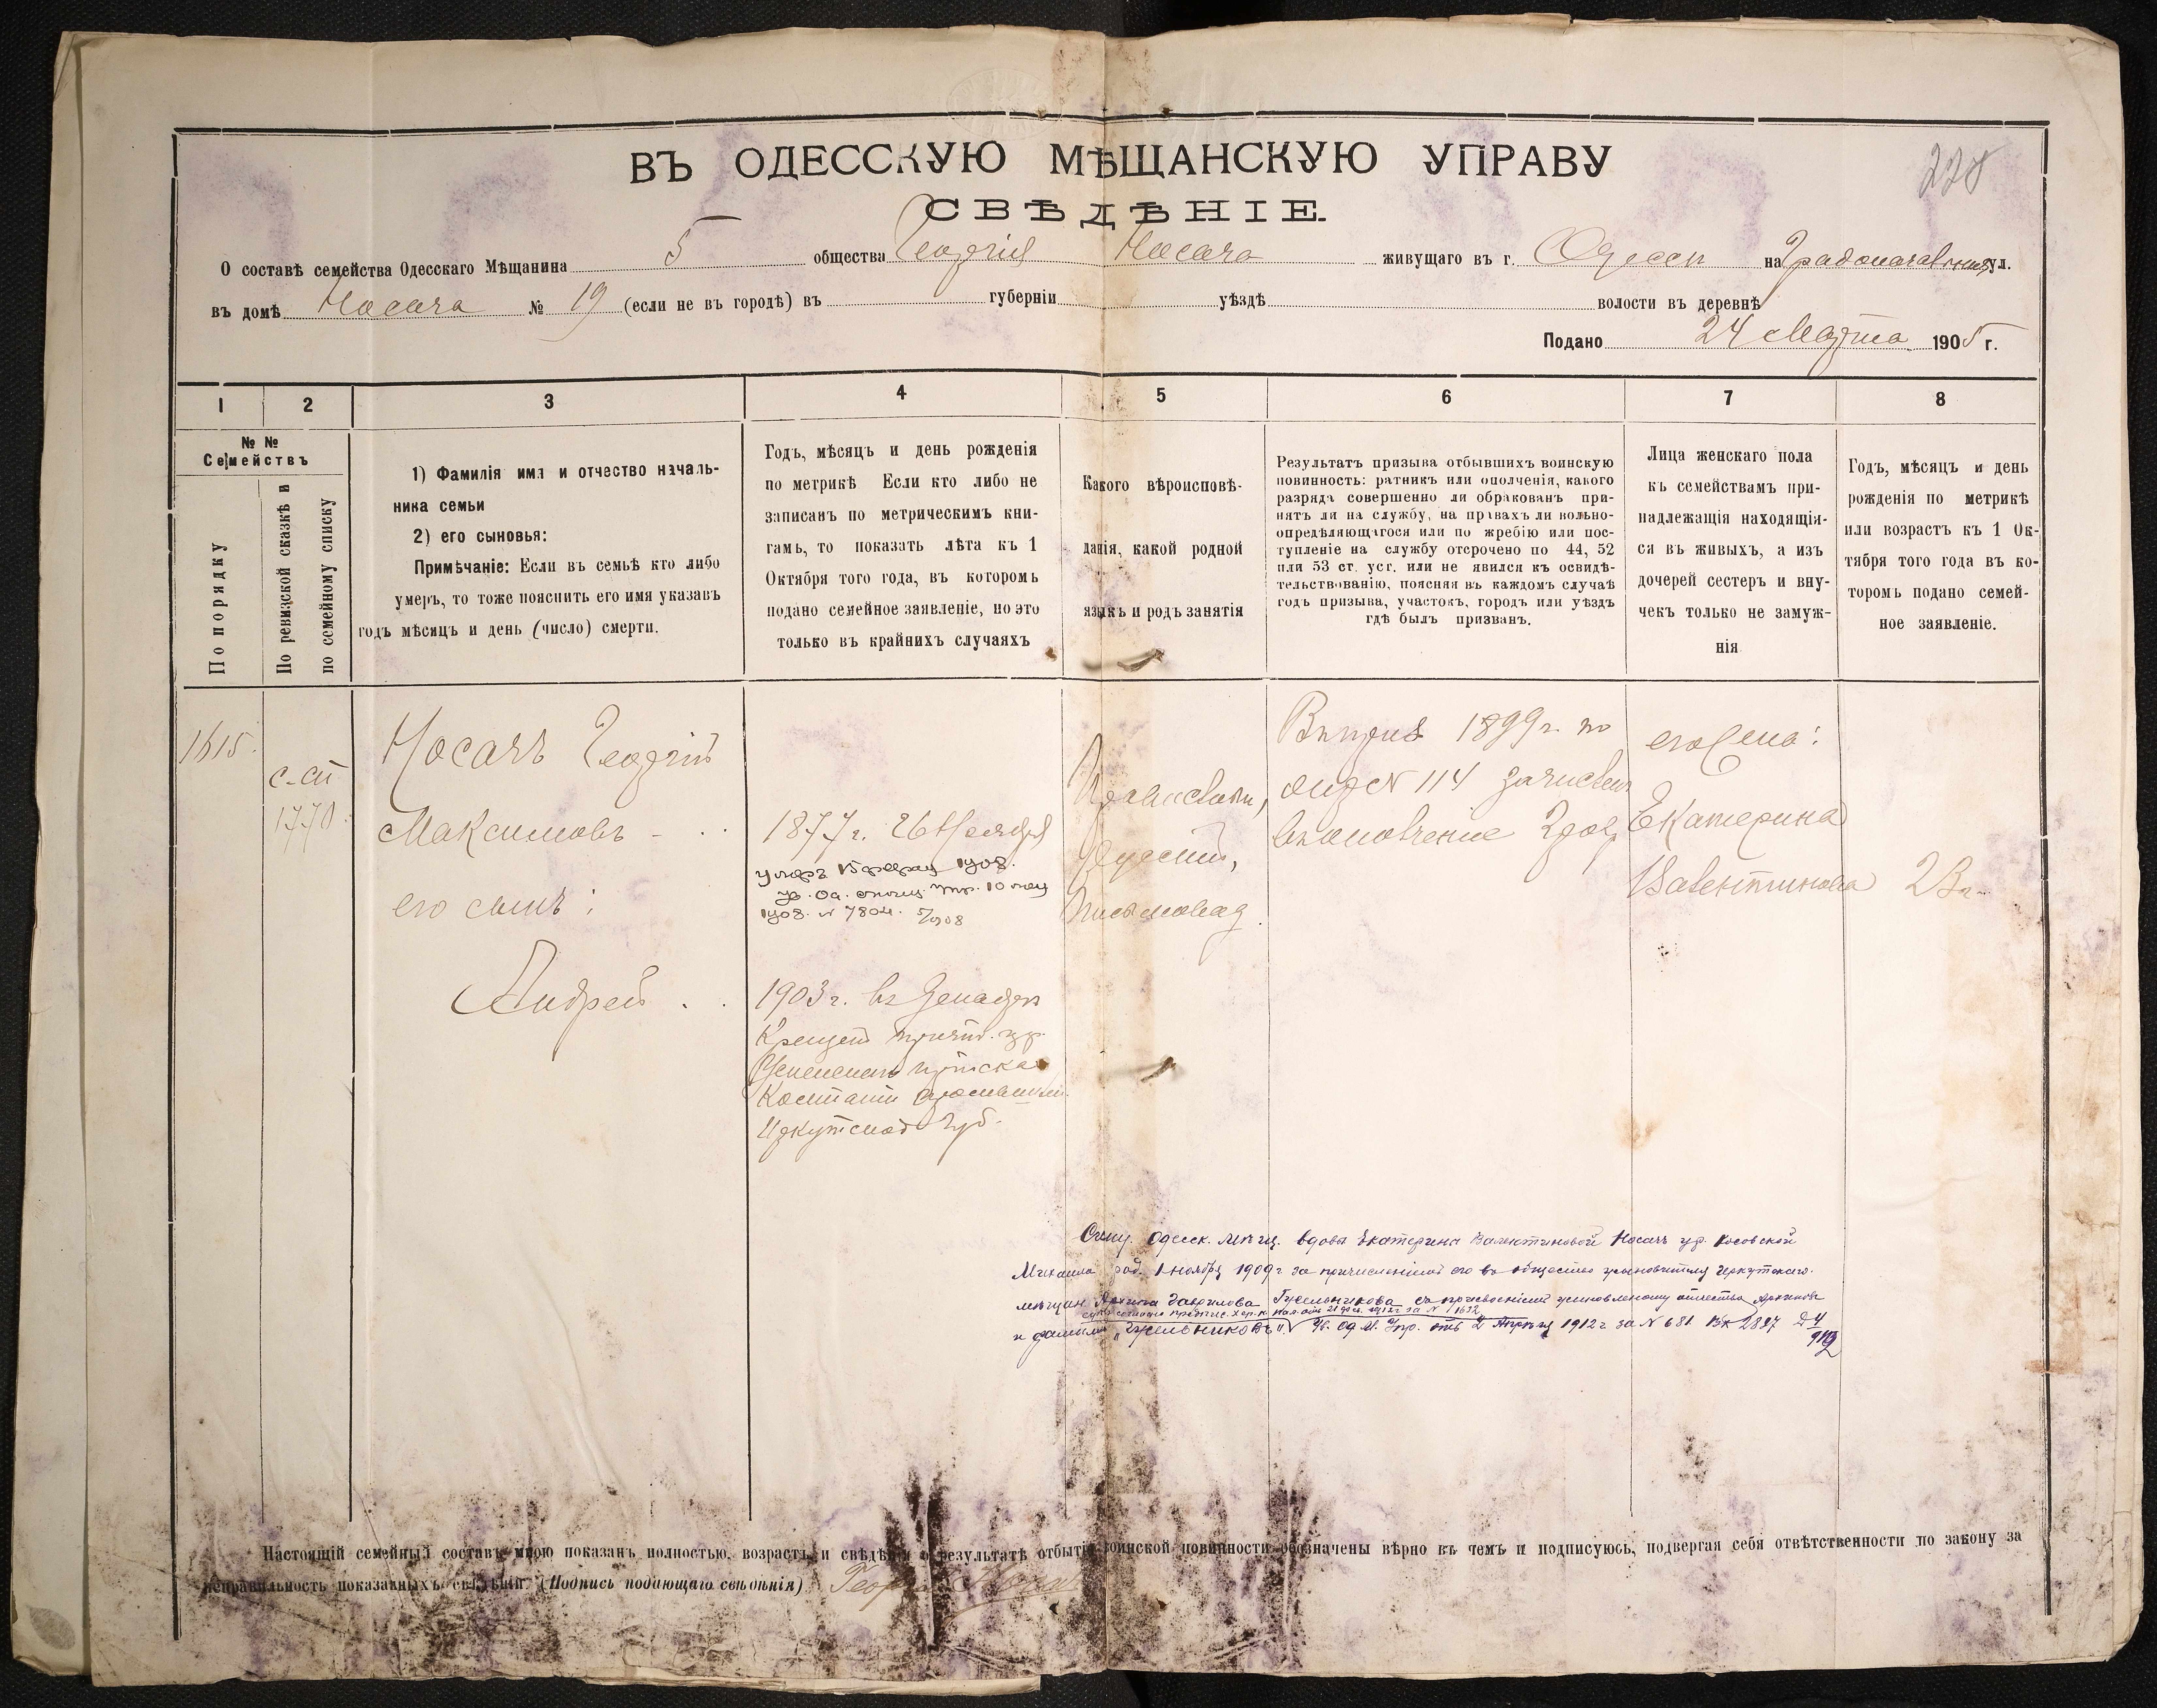 228
ВЪ ОДЕССКУЮ МѢЩАНСКУЮ УПРАВУ
СВѢДѢНІЕ.
О составѣ семейства Одесскаго Мѣщанина 5 общества Георгія Носача живущаго въ г. Одессѣ на Градоначальниц. ул.
въ домѣ Носача № 19 (если не въ городѣ) въ губерніи уѣздѣ волости въ деревнѣ
Подано 24 Марта 1905 г.
1 2 3 4 5 6 7 8
№ №
Семействъ
По порядку
По ревизской сказкѣ и
по семейному списку
1) Фамилія имя и отчество началь-
ника семьи
2) его сыновья:
Примѣчаніе: Если въ семьѣ кто либо
умеръ, то тоже пояснить его имя указавъ
годъ мѣсяцъ и день (число) смерти.
Годъ, мѣсяцъ и день рожденія
по метрикѣ Если кто либо не
записанъ по метрическимъ кни-
гамъ, то показать лѣта къ 1
Октября того года, въ которомъ
подано семейное заявленіе, но это
только въ крайнихъ случаяхъ
Какого вѣроисповѣ-
данія, какой родной
языкъ и родъ занятія
Результатъ призыва отбывшихъ воинскую
повинность: ратникъ или ополченія, какого
разряда совершенно ли обракованъ при-
нятъ ли на службу, на правахъ ли вольно-
опредѣляющагося или по жребію или пос-
тупленіе на службу отсрочено по 44, 52
или 53 ст. уст. или не явился къ освидѣ-
тельствованію, поясняя въ каждомъ случаѣ
годъ призыва, участокъ, городъ или уѣздъ
гдѣ былъ призванъ.
Лица женскаго пола
къ семействамъ при-
надлежащія находящія-
ся въ живыхъ, а изъ
дочерей сестеръ и вну-
чекъ только не замуж-
нія
Годъ, мѣсяцъ и день
рожденія по метрикѣ
или возрастъ къ 1 Ок-
тября того года въ ко-
торомъ подано семей-
ное заявленіе.
1615.
с-сп
1770.
Носачъ Георгій
Максимовъ
его сынъ:
Андрей
1877 г. 26 Ноября
умеръ 15 феврал 1908.
1908. № 7804. 5/1908
1903 г. 
Иркутской губ.
Православн,
Русскій,
Въ призыв 1899 г. по
жер № 114 зачислен
въ ополченіе 2 разр
его жена:
Екатерина
Валентинова
23 г.
Сыну Одесск. мѣщ. вдовы Екатерина Валентиновой Носачъ ур. Косовской
Михаила род. 1 ноября 1909 г за причисленіемъ его въ общество усыновителя Иркутскаго
мѣщан. Архипа Гаврилова Гусельникова съ присвоеніемъ усыновленому отчества Архиповъ
и фамиліи „Гусельниковъ". Ув. Од. М. Упр. отъ 2 Апрѣля 1912 г за № 681 Вх 2897
Настоящій семейный составъ мною показанъ полностью, возрастъ и свѣдѣнія о результатѣ отбытія воинской повинности обозначены вѣрно въ чемъ и подписуюсь, подвергая себя отвѣтственности по закону за
неправильность показанныхъ свѣдѣній. (Подпись подающаго свѣдѣнія) Георгій Носачъ